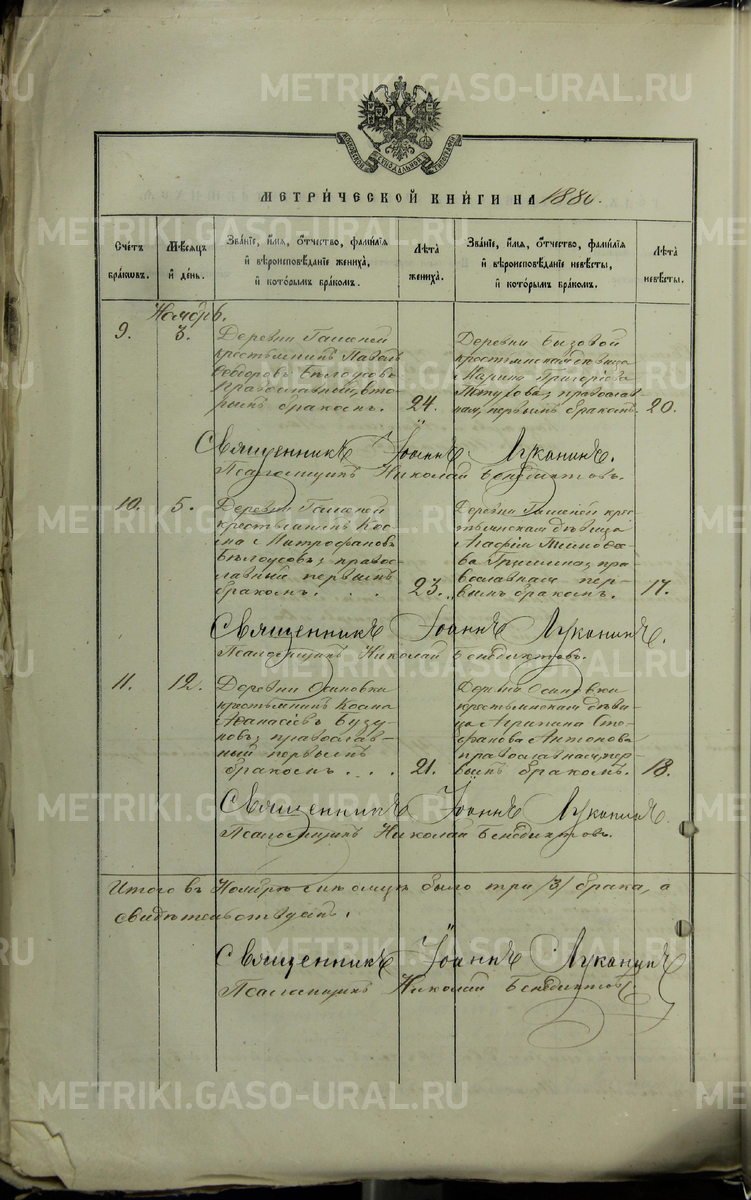 METRIKI.GASO-URAL.RU
МОСКОВСКОЙ СѴНОДАЛЬНОЙ ТИПОГРАФІИ
МЕТРИ́ЧЕСКОЙ КНИ́ГИ НА 1880.
Сче́тъ бра́кωвъ.
Мѣ́сяцъ и҆ де́нь.
Зва́нїе, и҆́мя, ѻ҆́тчество, фами́лїя и҆ вѣроисповѣ́данїе жениха̀, и҆ кото́рымъ бра́комъ.
Лѣ́та жениха̀.
Зва́нїе, и҆́мя, ѻ҆́тчество, фами́лїя и҆ вѣроисповѣ́данїе невѣ́сты, и҆ кото́рымъ бра́комъ.
Лѣ́та невѣ́сты.
Ноябрь.
9.
3.
Деревни
крестьянинъ Павелъ
Ѳеодоровъ Бѣлоусовъ
православный, вто-
рымъ бракомъ.
24.
Деревни Бызовой
крестьянская дѣвица
Марина Григоріева
православ
ная, первымъ бракомъ.
20.
Священникъ Іоаннъ Луканинъ.
Псаломщикъ Николай Бенедиктовъ.
10.
5.
Деревни
крестьянинъ Кос-
ма Митрофановъ
Бѣлоусовъ, право-
славный первымъ
бракомъ. . .
23.
Деревни крес-
тьянская дѣвица
Агафія
пра-
вославная пер-
вымъ бракомъ.
17.
Священникъ Іоаннъ Луканинъ.
Псаломщикъ Николай Бенедиктовъ.
11.
12.
Деревни Осиновки
крестьянинъ Косма
Аѳанасіевъ Бузу-
новъ, православ-
ный первымъ
бракомъ. . .
21.
Деревни Осиновки
крестьянская дѣви-
ца Агрипина Сте-
фанова Антонова
православная, пер-
вымъ бракомъ.
18.
Священникъ Іоаннъ Луканинъ.
Псаломщикъ Николай Бенедиктовъ.
Итого въ Ноябрѣ мѣсяцѣ было три /3/ брака, а
Священникъ Іоаннъ Луканинъ
Псаломщикъ Николай Бенедиктовъ.
METRIKI.GASO-URAL.RU